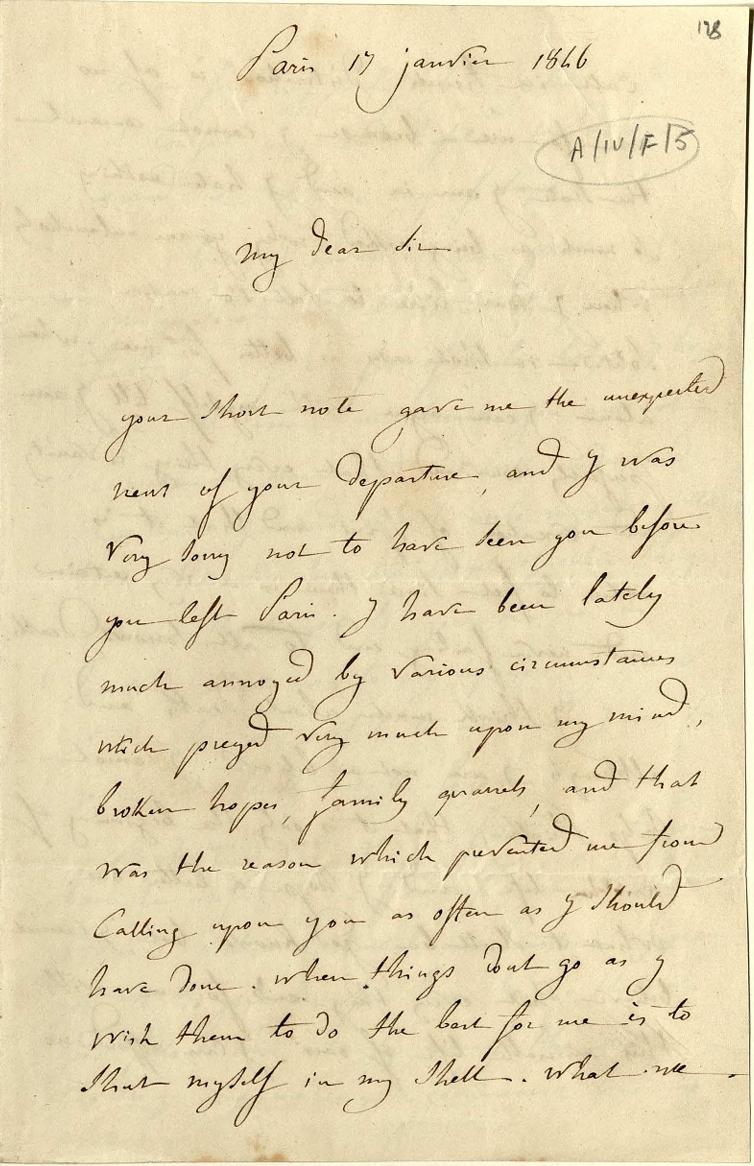 128
Paris 17 janvier 1846
A/IV/F/5
my dear Sir
your short note gave me the unexpected
news of your departure, and y was
very sorry not to have seen you before
you left Paris. y have been lately
much annoyed by various circumstances
which preyed very much upon my mind,
broken hopes, family quarrels, and that
was the reason which prevented me from
calling upon you as often as y should
have done. when things dont go as y
wish them to do the best for me is to
shut myself in my shell. what